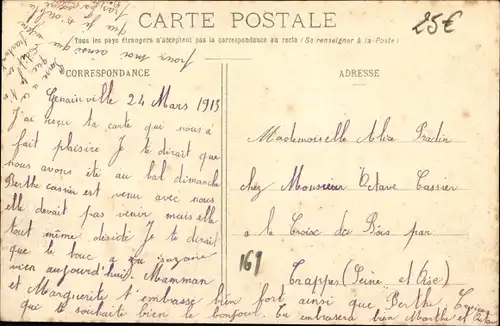 CARTE POSTALE
25€
Tous les pays étrangers n'acceptent pas la correspondance au recto (Se renseigner à la Poste)
pour moi ainsi que
CORRESPONDANCE
ADRESSE
Genainville 24 Mars 1913
J'ai reçu ta carte que nous a
fait plaisire Je te dirait que
nous avons été au bal dimanche
Berthe cassier est venu avec nous
elle devait pas venir mais elle
tout même désidé Je te dirait
que le bouc a
vien aujourd'hui. Mamman
et Marguerite t'embrasse bien fort ainsi que Berthe
qui te souhaite bien le bonjour. Tu embrasera bien Marthe et
Mademoiselle Alice Pradin
chez Monsieur Octave Cassier
a la Croix du Bois par
169
Trappes (Seine et Oise)